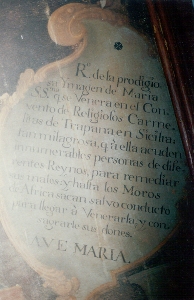 R.to de la prodigio
sa Ymagen de Maria
SS.ma q. se Venera en el Con
vento de Religiosos Carme
litas de Trapana en Sicilia,
tan milagrosa, q. à ella acuden
innumerables personas de dife
rentes Reynos, para remediar
sus males, y hasta los Moros
de Africa sacan salvo conducto
para llegar à Venerarla, y con
sus dones.
AVE MARIA.